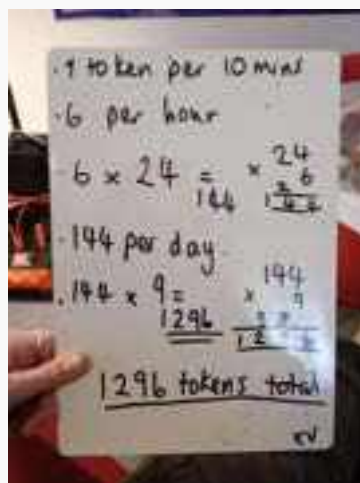 · 1 token per 10 mins
· 6 per hour
· 6 x 24 =
144
24
x 6
2
144
· 144 per day
· 144 x 9 =
1296
194
x 9
1296 tokens total